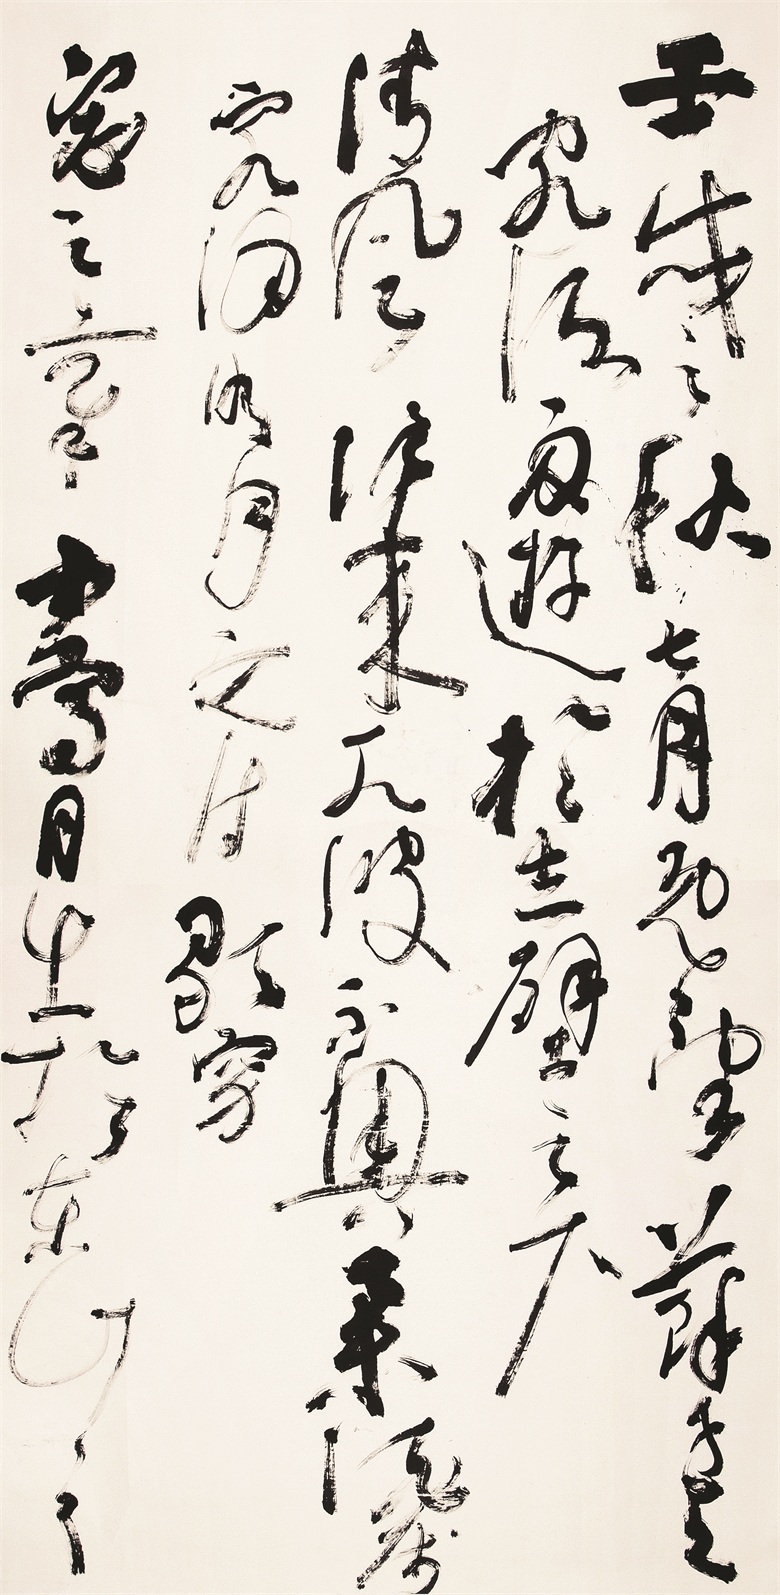 壬戌之秋七月既望蘇子與
客泛舟遊於赤壁之下
清風徐來水波不興舉酒屬
客誦明月之詩歌窈
窕之章少焉月出於東山之上